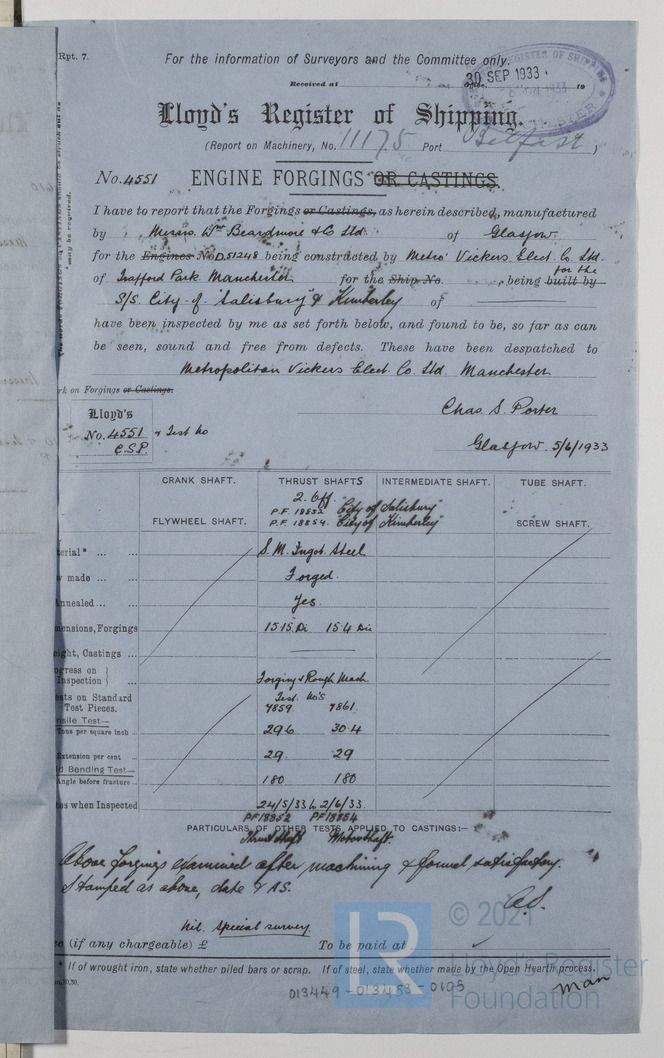 Rpt. 7.
For the information of Surveyors and the Committee only.
Received at
30 SEP 1933
19
Lloyd's Register of Shipping.
(Report on Machinery, No. 11175 Port Belfast )
No. 4551 ENGINE FORGINGS OR CASTINGS.
I have to report that the Forgings or Castings, as herein described, manufactured
by Messrs. Wm Beardmore & Co Ltd of Glasgow
for the Engines No D51248 being constructed by Metro' Vickers Elect. Co. Ltd.
of Trafford Park Manchester for the Ship No. being built by for the
S/S. City of Salisbury & Kimberley of
have been inspected by me as set forth below, and found to be, so far as can
be seen, sound and free from defects. These have been despatched to
Metropolitan Vickers Elect. Co. Ltd Manchester
rk on Forgings or Castings.
Lloyd's
No. 4551 & Test No
C.S.P.
Chas S. Porter
Glasgow. 5/6/1933
CRANK SHAFT. THRUST SHAFTS INTERMEDIATE SHAFT. TUBE SHAFT.
2. Off
P.F. 18852 City of Salisbury
FLYWHEEL SHAFT. P.F. 18854. City of Kimberley SCREW SHAFT.
terial* S.M. Ingot Steel
w made Forged.
nnealed Yes.
mensions, Forgings 15.4 Dia
ight, Castings
ogress on
Inspection Forging & Rough Mach
sts on Standard Test No's
Test Pieces. 7859 7861.
nsile Test—
Tons per square inch 29.6 30.4
Extension per cent 29. 29
ld Bending Test—
Angle before fracture 180 180
tes when Inspected 24/5/33 & 2/6/33.
PF18852 PF18854
PARTICULARS OF OTHER TESTS APPLIED TO CASTINGS:—
Thrust shaft Motor shaft.
Above forgings examined after machining & found satisfactory.
Stamped as above, date & AS.
AS.
Nil. Special survey.
e (if any chargeable) £ To be paid at
* If of wrought iron, state whether piled bars or scrap. If of steel, state whether made by the Open Hearth process.
013449-013453-0195
man
LR
© 2021
Lloyd's Register
Foundation